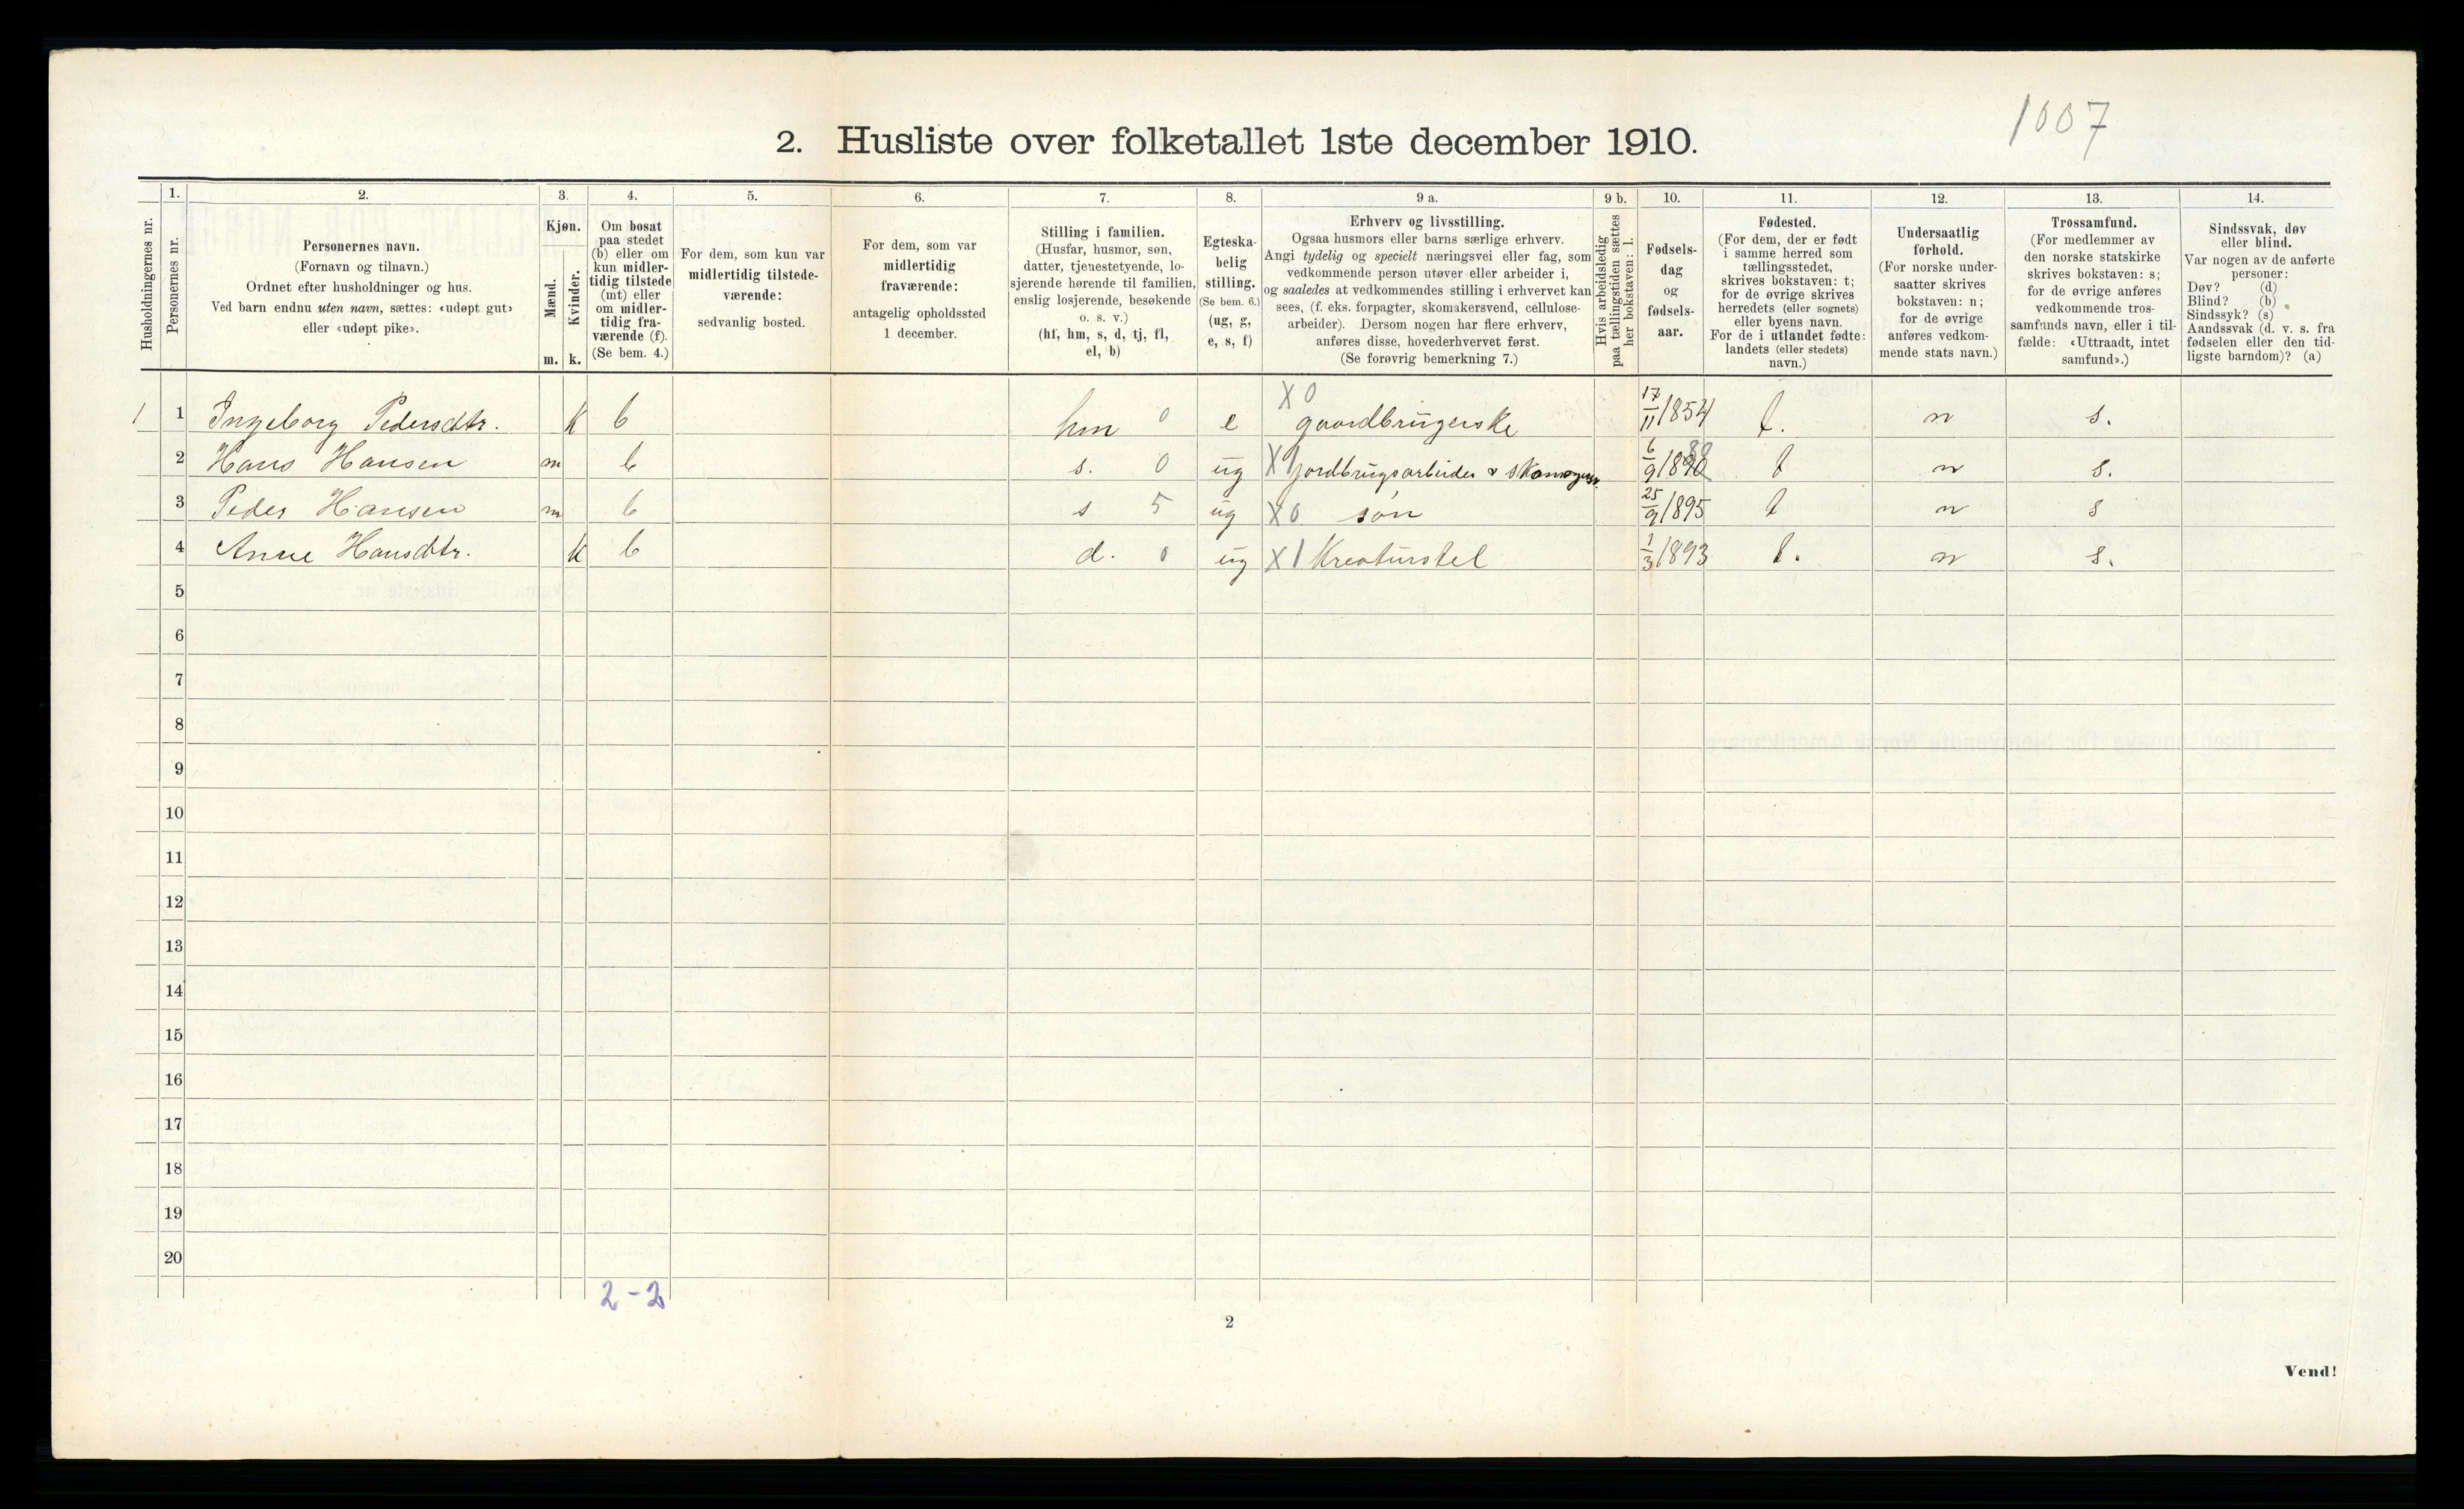 1007
2. Husliste over folketallet 1ste december 1910.
Husholdningernes nr.
1.
Personernes nr.
2.
Personernes navn.
(Fornavn og tilnavn.)
Ordnet efter husholdninger og hus.
Ved barn endnu uten navn, sættes: «udøpt gut»
eller «udøpt pike».
3.
Kjøn.
Mænd.
Kvinder.
m. k.
4.
Om bosat
paa stedet
(b) eller om
kun midler-
tidig tilstede
(mt) eller
om midler-
tidig fra-
værende (f).
(Se bem. 4.)
5.
For dem, som kun var
midlertidig tilstede-
værende:
sedvanlig bosted.
6.
For dem, som var
midlertidig
fraværende:
antagelig opholdssted
1 december.
7.
Stilling i familien.
(Husfar, husmor, søn,
datter, tjenestetyende, lo-
sjerende hørende til familien,
enslig losjerende, besøkende
o. s. v.)
(hf, hm, s, d, tj, fl,
el, b)
8.
Egteska-
belig
stilling.
(Se bem. 6.)
(ug, g,
e, s, f)
9 a.
Erhverv og livsstilling.
Ogsaa husmors eller barns særlige erhverv.
Angi tydelig og specielt næringsvei eller fag, som
vedkommende person utøver eller arbeider i,
og saaledes at vedkommendes stilling i erhvervet kan
sees, (f. eks. forpagter, skomakersvend, cellulose-
arbeider). Dersom nogen har flere erhverv,
anføres disse, hovederhvervet først.
(Se forøvrig bemerkning 7.)
9 b.
Hvis arbeidsledig
paa tællingstiden sættes
her bokstaven: l.
10.
Fødsels-
dag
og
fødsels-
aar.
11.
Fødested.
(For dem, der er født
i samme herred som
tællingsstedet,
skrives bokstaven: t;
for de øvrige skrives
herredets (eller sognets)
eller byens navn.
For de i utlandet fødte:
landets (eller stedets)
navn.)
12.
Undersaatlig
forhold.
(For norske under-
saatter skrives
bokstaven: n;
for de øvrige
anføres vedkom-
mende stats navn.)
13.
Trossamfund.
(For medlemmer av
den norske statskirke
skrives bokstaven: s;
for de øvrige anføres
vedkommende tros-
samfunds navn, eller i til-
fælde: «Uttraadt, intet
samfund».)
14.
Sindssvak, døv
eller blind.
Var nogen av de anførte
personer:
Døv? (d)
Blind? (b)
Sindssyk? (s)
Aandssvak (d. v. s. fra
fødselen eller den tid-
ligste barndom)? (a)
1 1 Ingeborg Pedersdtr. k b hm 0 e X 0 gaardbrugerske 17/11 1854 t. n s.
2 Hans Hansen m b s. 0 ug X 1 jordbrugsarbeider & 6/9 1890 t n s.
3 Peder Hansen m b s 5 ug X 0 søn 25/9 1895 t n s
4 Anne Hansdtr. k b d. 0 ug X 1 Kreaturstel 1/3 1893 t. n s.
5
6
7
8
9
10
11
12
13
14
15
16
17
18
19
20
2-2
2
Vend!